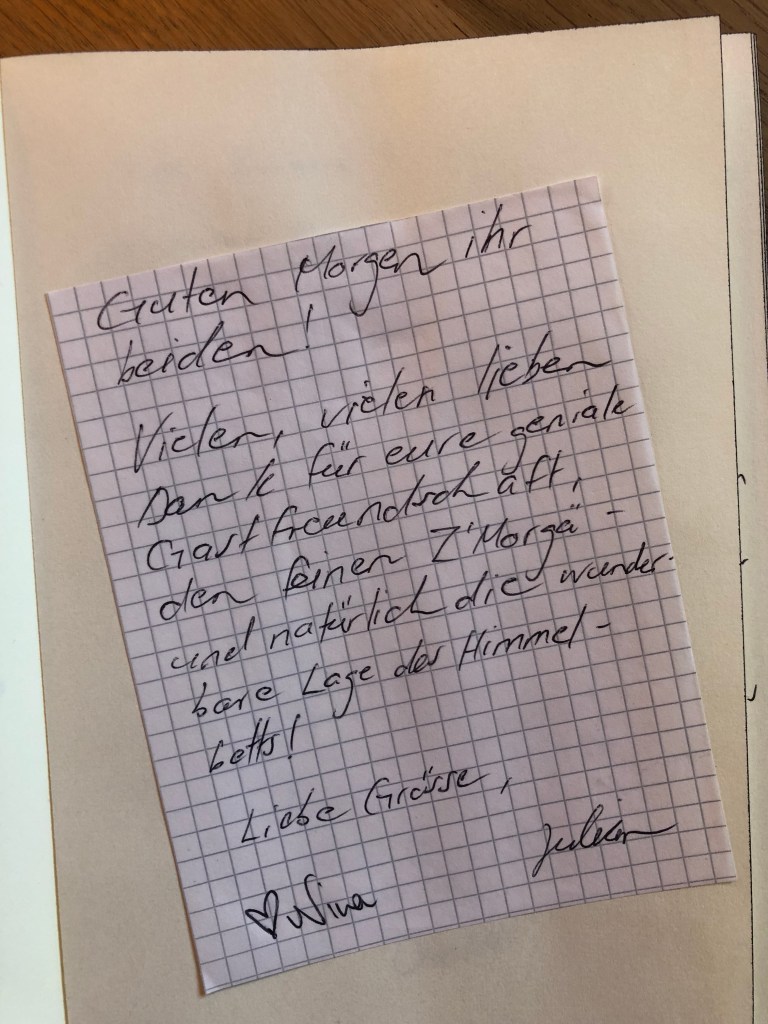 Guten Morgen ihr
beiden!
Vielen, vielen lieben
Dank für eure geniale
Gastfreundschaft,
den feinen Z'Morgä -
und natürlich die wunder-
bare Lage des Himmel-
betts!
Liebe Grüsse,
Julian
♡Nina